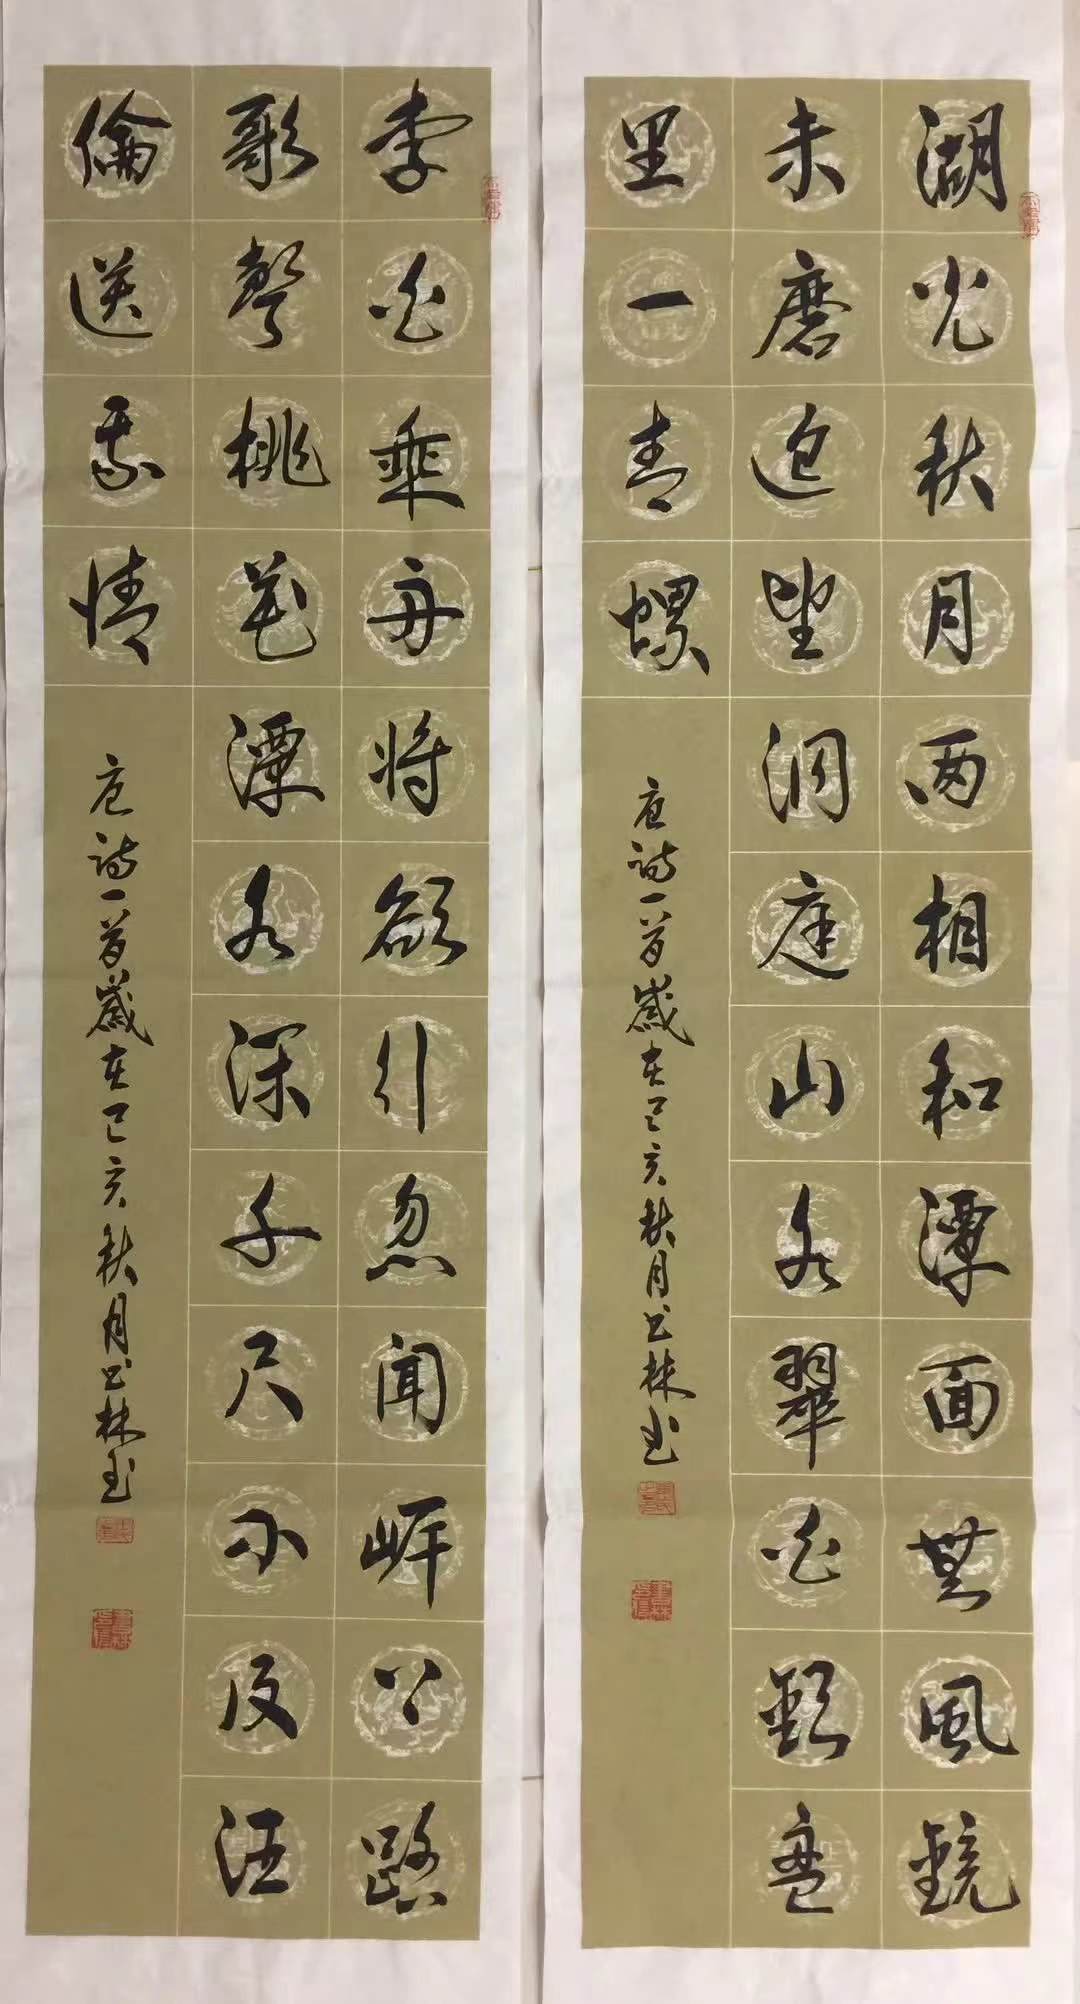 湖光秋月两相和潭面無風鏡
未磨遥望洞庭山水翠白銀盤
里一青螺
唐诗一首歲在己亥秋月书林书
李白乘舟将欲行忽聞岸上踏
歌聲桃花潭水深千尺不及汪
倫送我情
唐诗一首歲在己亥秋月书林书